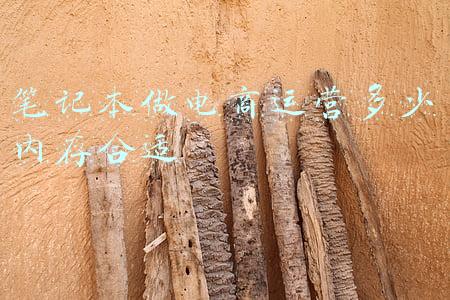 笔记本做电商运营多少
内存合适